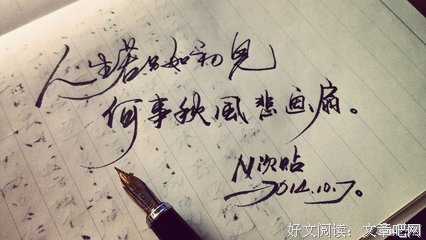 人生若只如初见
何事秋风悲画扇。
N次贴
2014.10.7.
好文阅读：文章吧网